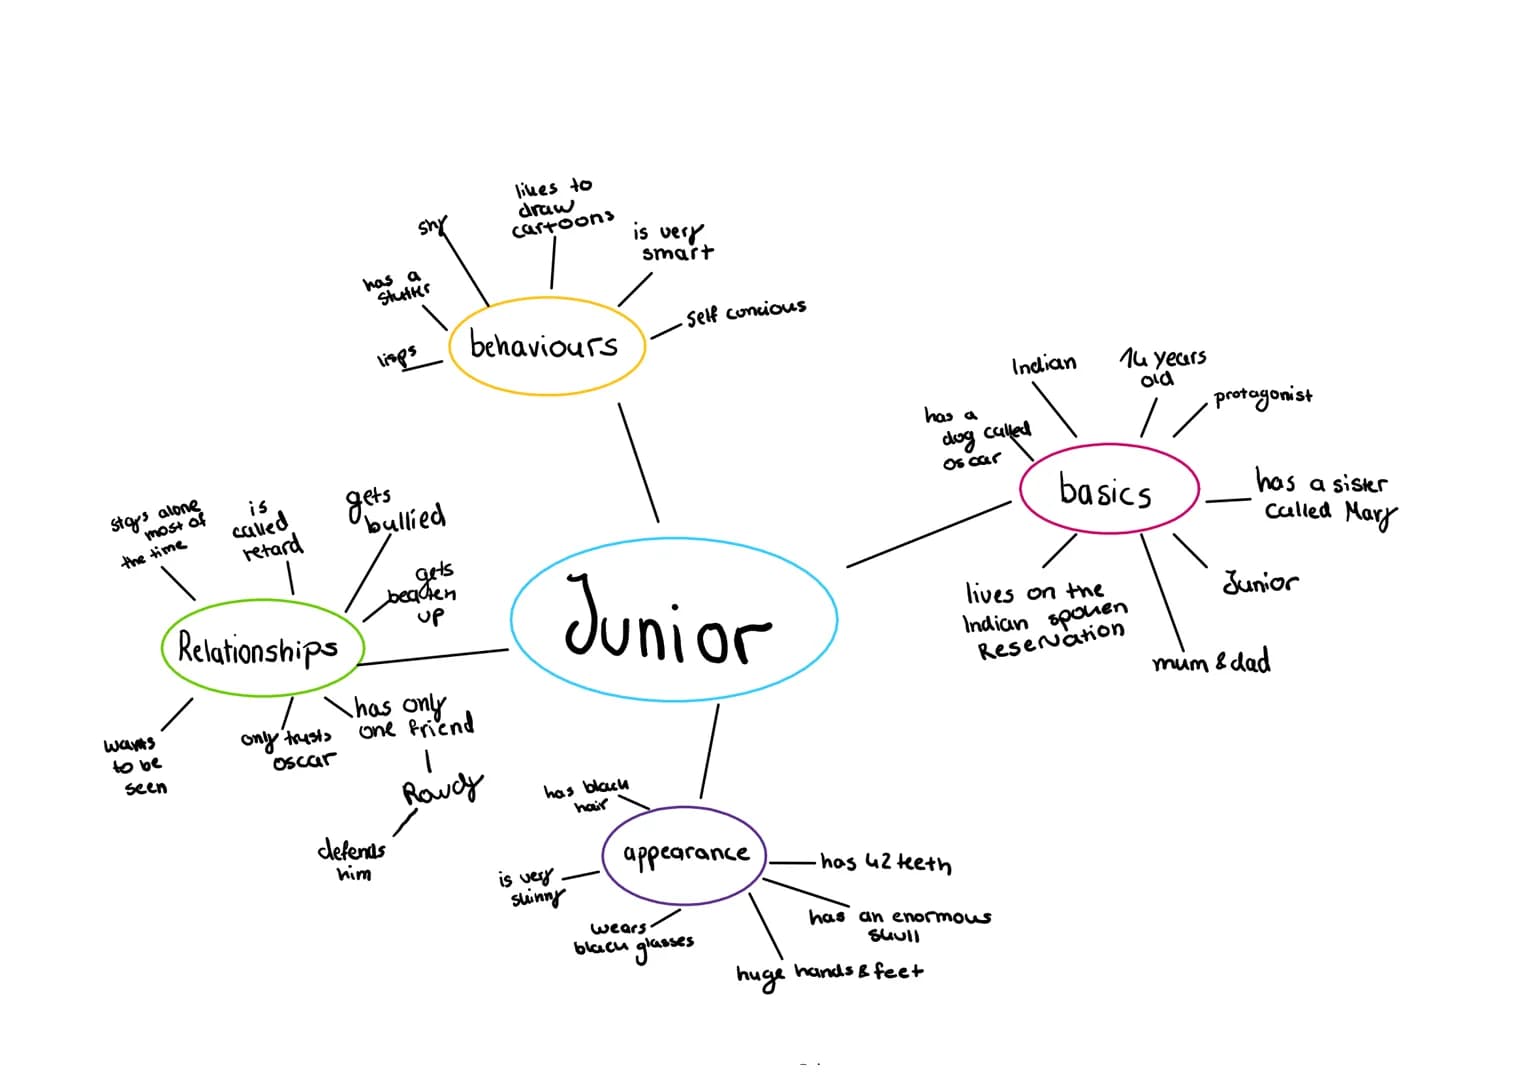 likes to
draw
cartoons
shy
is very
smart
has a
stutter
self concious
lisps
behaviours
Indian
14 years
old
protagonist
has a
dog called
oscar
basics
has a sister
called Mary
Junior
lives on the
Indian spoken
Reservation
mum & dad
gets
bullied
stays alone
most of
the time
is
called
retard
gets
beaten
up
Relationships
Junior
has only
one friend
only trusts
oscar
wants
to be
seen
Rowdy
defends
him
has black
hair
appearance
has 42 teeth
is very
skinny
has an enormous
skull
wears
black glasses
huge hands & feet